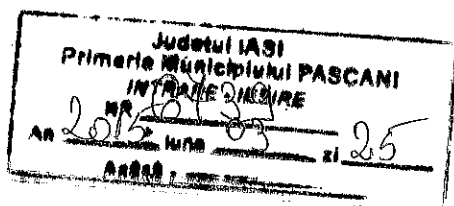 Judetul IASI
Primaria Municipiului PASCANI
INTRARE - IESIRE
NR.
An 2015 luna 03 zi 25